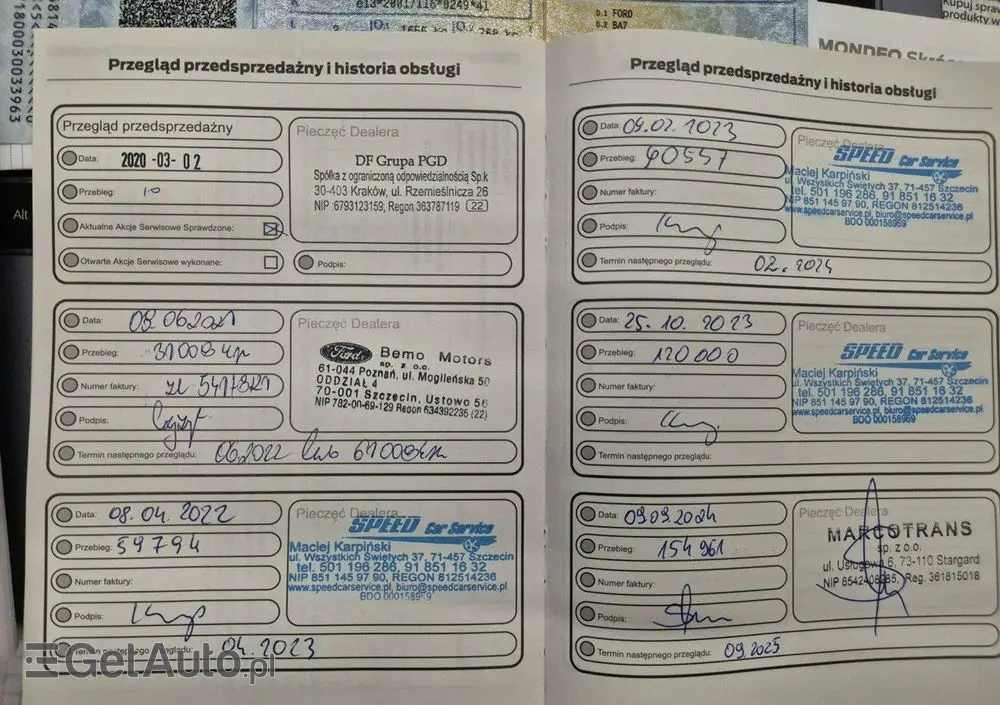 e13*2001/116*0249*41
D.1 FORD
D.2 BA7
180003003 3963
Alt
MONDEO
Kupuj spraw
produkty w
Przegląd przedsprzedażny i historia obsługi
Przegląd przedsprzedażny
Data: 2020-03-02
Przebieg: 10
Aktualne Akcje Serwisowe Sprawdzone:
Otwarte Akcje Serwisowe wykonane:
Pieczęć Dealera
DF Grupa PGD
Spółka z ograniczoną odpowiedzialnością Sp.k
30-403 Kraków, ul. Rzemieślnicza 26
NIP :6793123159; Regon 363787119 22
Podpis:
Data: 08.06.2021
Przebieg: 31008 km
Numer faktury:
Podpis:
Termin następnego przeglądu: 06.2022 lub 61008km
Pieczęć Dealera
Ford
Bemo Motors
sp. z o.o.
61-044 Poznań, ul. Mogileńska 50
ODDZIAŁ 4
70-001 Szczecin, Ustowo 56
NIP 782-00-69-129 Regon 634392236 (22)
Data: 08.04.2022
Przebieg: 59794
Numer faktury:
Podpis:
Termin następnego przeglądu: 04.2023
Pieczęć Dealera
SPEED Car Service
Maciej Karpiński
ul. Wszystkich Świętych 37, 71-457 Szczecin
tel. 501 196 286, 91 851 16 32
NIP 851 145 97 90, REGON 812514236
www.speedcarservice.pl, biuro@speedcarservice.pl
BDO 000158969
GetAuto.pl
Przegląd przedsprzedażny i historia obsługi
Data: 09.02.2023
Przebieg: 90557
Numer faktury:
Podpis:
Termin następnego przeglądu: 02.2024
Pieczęć Dealera
SPEED Car Service
Maciej Karpiński
ul. Wszystkich Świętych 37, 71-457 Szczecin
tel. 501 196 286, 91 851 16 32
NIP 851 145 97 90, REGON 812514236
www.speedcarservice.pl, biuro@speedcarservice.pl
BDO 000158969
Data: 25.10.2023
Przebieg: 120000
Numer faktury:
Podpis:
Termin następnego przeglądu:
Pieczęć Dealera
SPEED Car Service
Maciej Karpiński
ul. Wszystkich Świętych 37, 71-457 Szczecin
tel. 501 196 286, 91 851 16 32
NIP 851 145 97 90, REGON 812514236
www.speedcarservice.pl, biuro@speedcarservice.pl
BDO 000158969
Data: 09.09.2024
Przebieg: 154961
Numer faktury:
Podpis:
Termin następnego przeglądu: 09.2025
Pieczęć Dealera
MARCOTRANS
sp. z o.o.
ul. Usługowa 6, 73-110 Stargard
Reg. 361815018